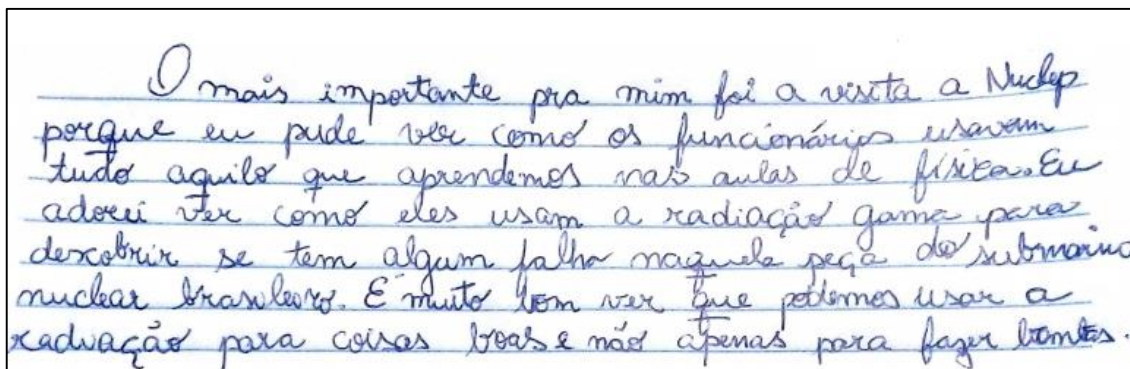 O mais importante pra mim foi a visita a Nuclep
porque eu pude ver como os funcionários usavam
tudo aquilo que aprendemos nas aulas de física. Eu
adorei ver como eles usam a radiação gama para
descobrir se tem algum falha naquela peça do submarino
nuclear brasileiro. É muito bom ver que podemos usar a
radiação para coisas boas e não apenas para fazer bombas.